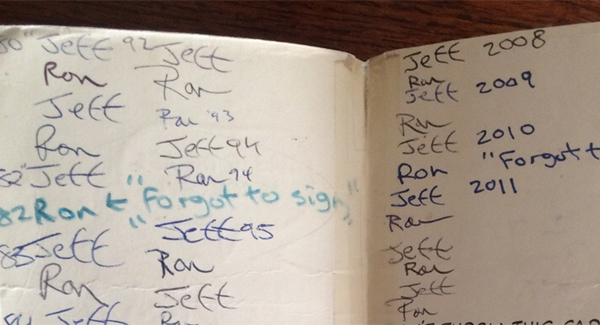 80" Jeff 92 Jeff
Ron Ron
Jeff Ron '93
Ron Jeff 94
Jeff Ron 94
82 Ron "Forgot to sign"
Jeff Jeff 95
Ron Ron
Jeff
Jeff
Jeff 2008
Ron
Jeff 2009
Ron
Jeff 2010
Ron "Forgot t
Jeff 2011
Ron
Jeff
Ron
Jeff
Ron